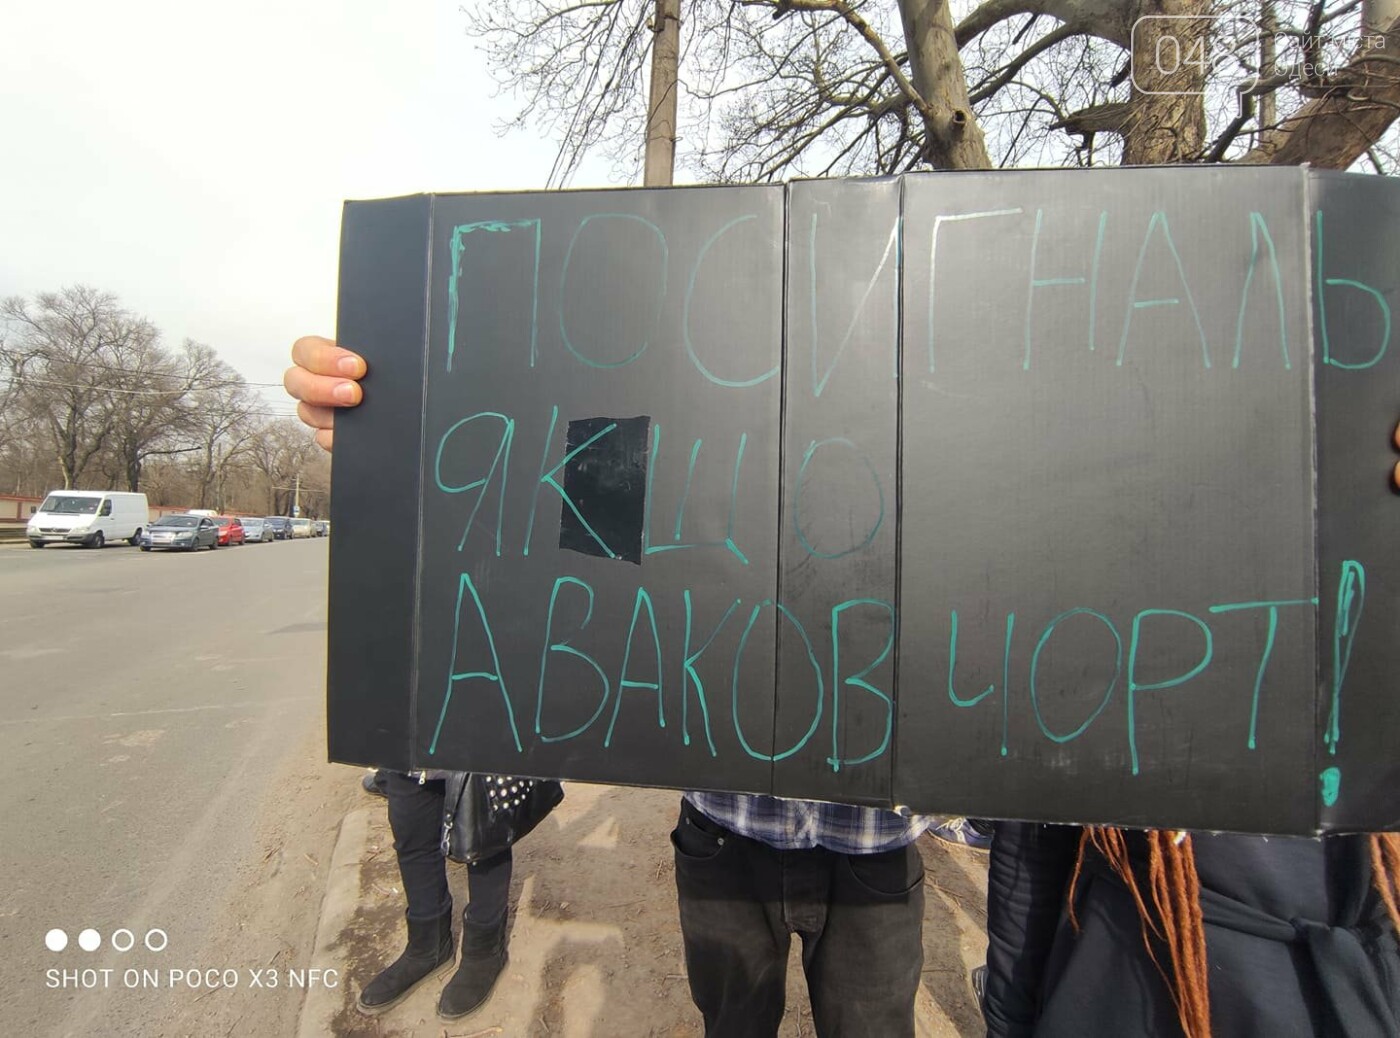 048
Сайт міста
Одеса
ПОСИГНАЛЬ
ЯКЩО
АВАКОВ ЧОРТ!
SHOT ON POCO X3 NFC